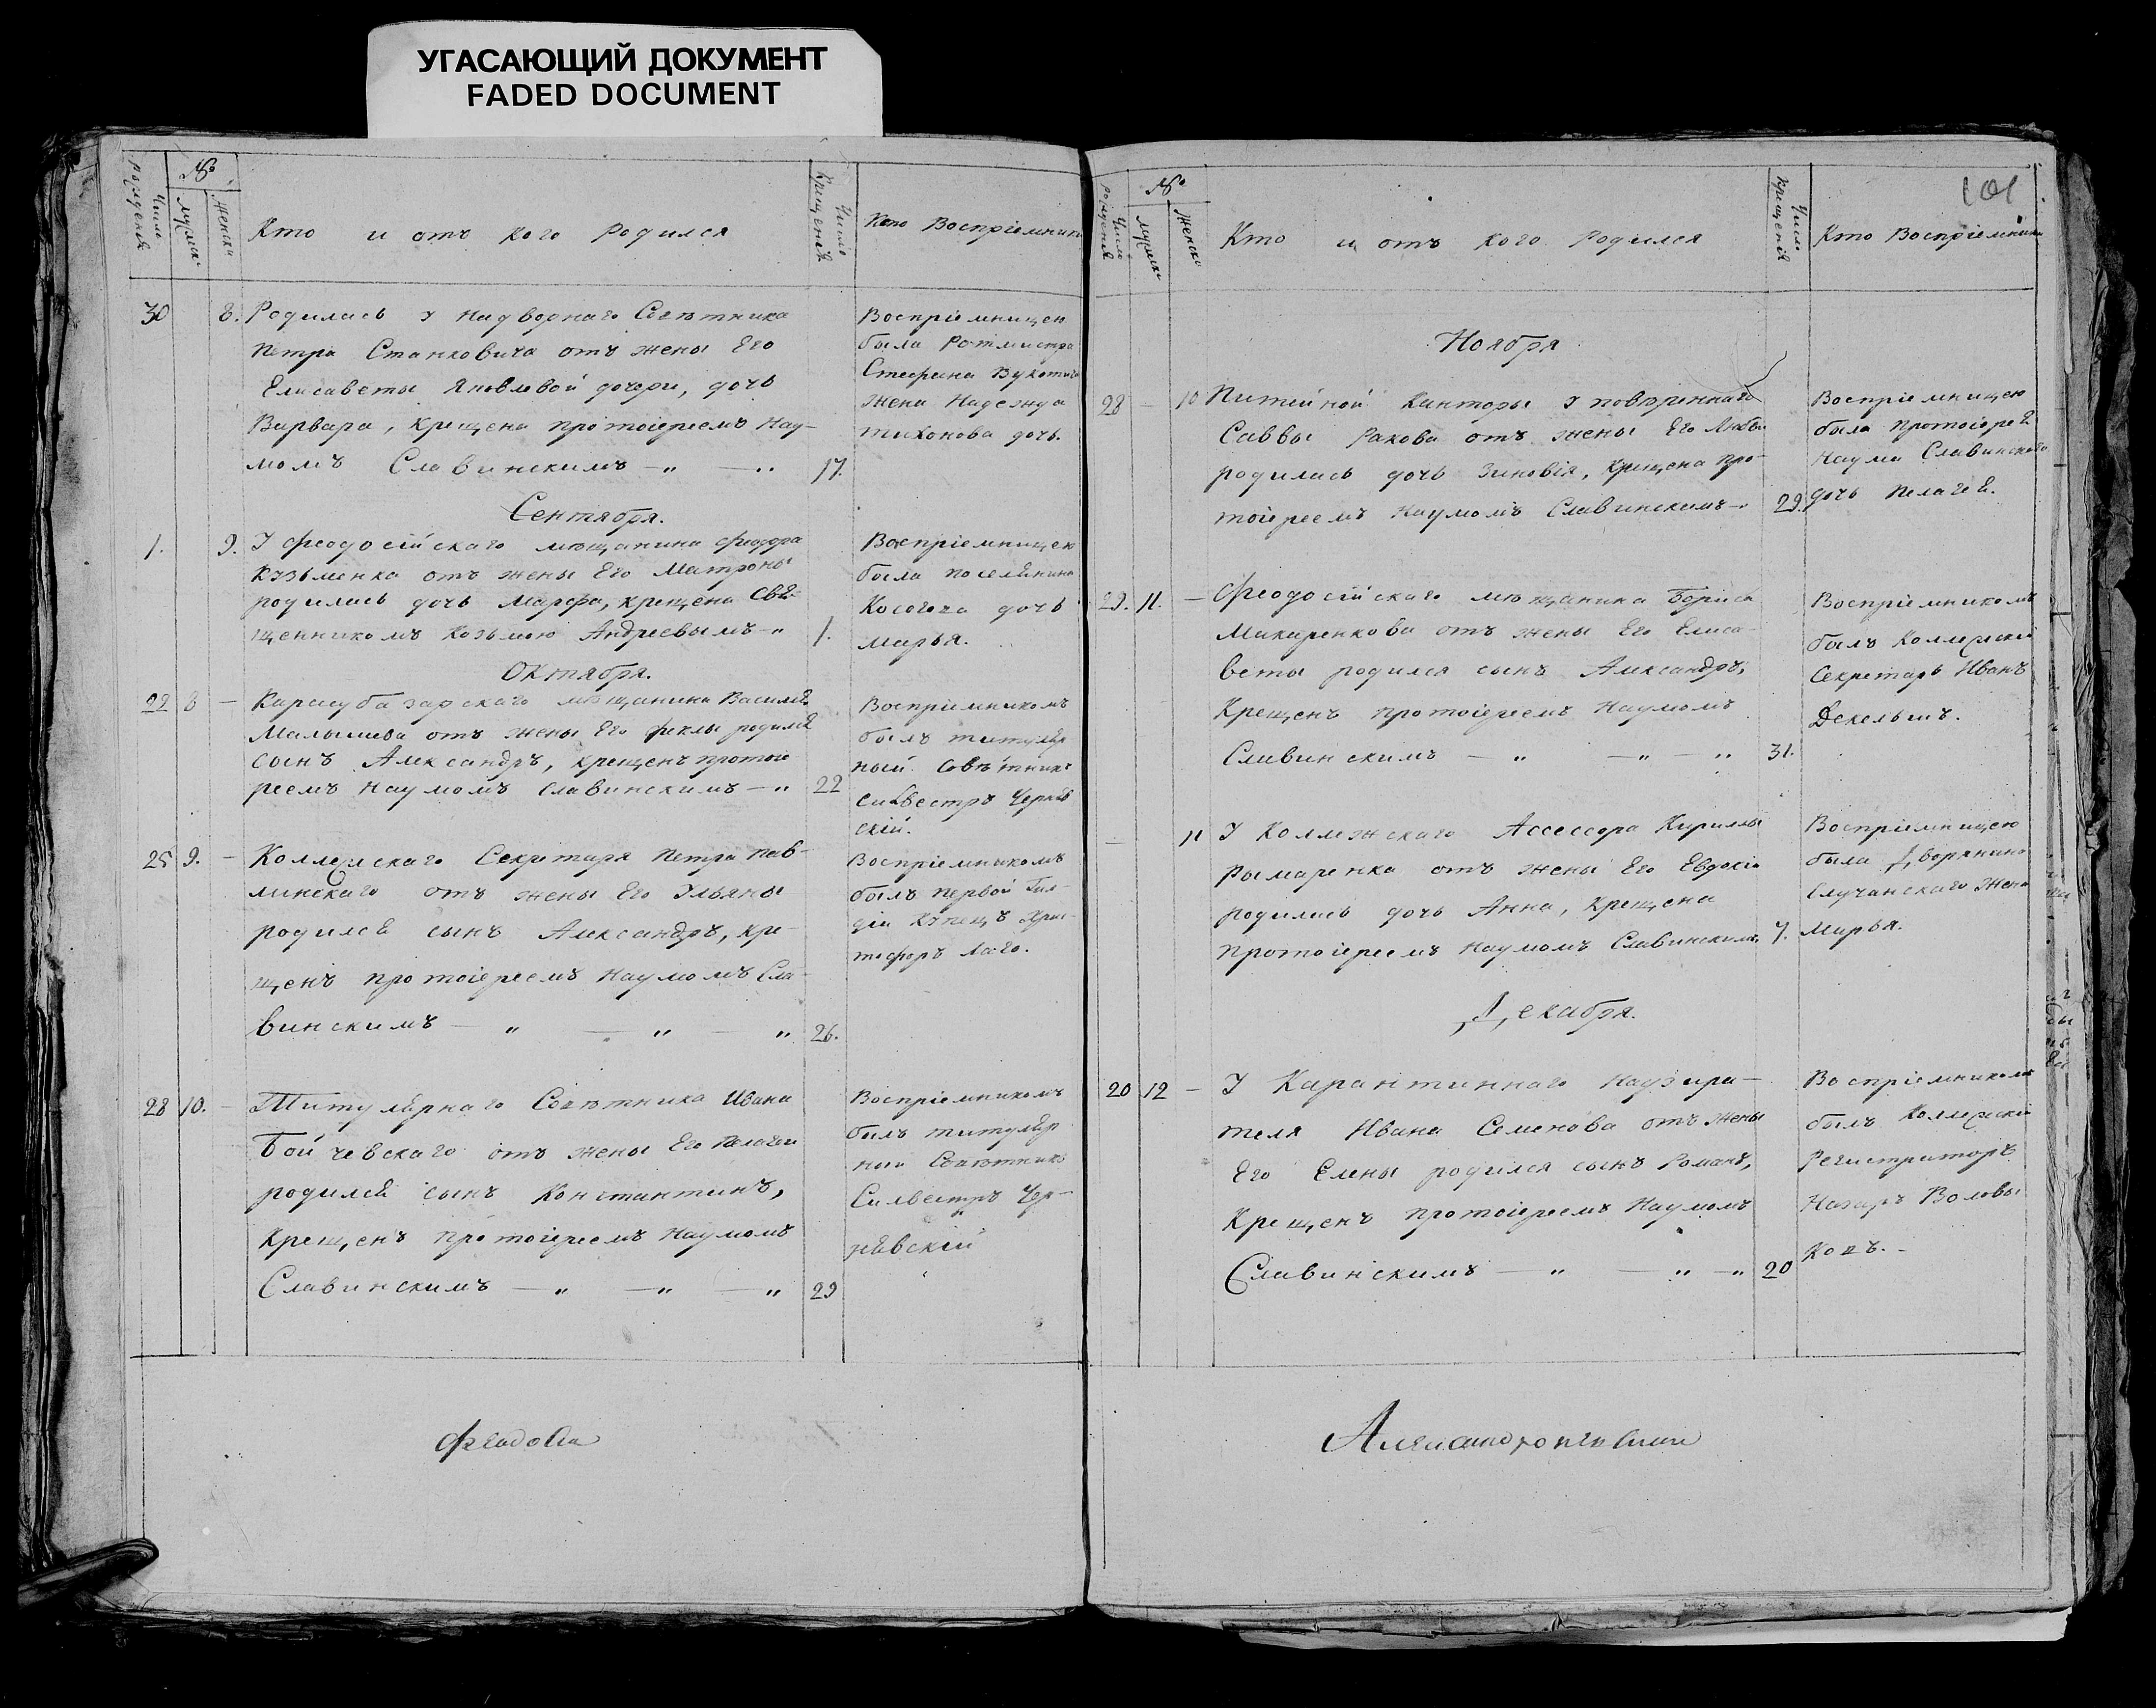 УГАСАЮЩИЙ ДОКУМЕНТ
FADED DOCUMENT
Число рожденія
№
мужск:
женск:
Кто и отъ кого Родился
Число Крещенія
Кто Воспріемники
30 8. Родилась у Надворнаго Совѣтника
Петра Станковича отъ жены Его
Елисаветы Яковлевой дочери, дочь
Варвара, Крещена протоіереемъ Нау-
момъ Славинскимъ — „ — „ 17.
Воспріемницею
была Ротмистра
Стефана Вукотича
жена Надежда
тихонова дочь.
Сентября.
1. 9. У Феодосійскаго мѣщанина Феодора
Кузьменка отъ жены Его Матроны
родилась дочь Марфа, крещена Свя-
щенникомъ Козьмою Андреевымъ — „ 1.
Воспріемницею
была поселянина
Косогоча дочь
Марья.
Октября.
22 8 — Карасубазарскаго мѣщанина Василія
Малышева отъ жены Его феклы родился
сынъ Александръ, крещенъ протоіе
реемъ Наумомъ Славинскимъ — „ 22
Воспріемникомъ
былъ титуляр
ный Совѣтникъ
Сильвестръ Черняв
скій.
25 9. — Коллежскаго Секретаря Петра Пав-
линскаго отъ жены Его Ульяны
родился сынъ Александръ, кре-
щенъ протоіереемъ Наумомъ Сла-
винскимъ — „ — „ — „ 26.
Воспріемникомъ
былъ первой Гил-
діи Купецъ Хрис-
тофоръ Лаго.
28 10. — Титулярнаго Совѣтника Ивана
Бойчевскаго отъ жены Его Пелагеи
родился сынъ Константинъ,
Крещенъ протоіереемъ Наумомъ
Славинскимъ — „ — „ — „ 29
Воспріемникомъ
былъ титуляр
ный Совѣтникъ
Сильвестръ Чер-
нявскій
Феодосіи
101
Число рожденія
№
мужск:
Женск:
Кто и отъ кого Родился
Число Крещенія
Кто Воспріемники
Ноября
28 — 10 Питейной Канторы у повѣреннаго
Саввы Ракова отъ жены Его Любви
родилась дочь Зиновія, Крещена про-
тоіереемъ Наумомъ Славинскимъ — „ 29.
Воспріемницею
была протоіерея
Наума Славинскаго
дочь Пелагея.
29. 11. — Феодосійскаго мѣщанина Бориса
Макаренкова отъ жены Его Елиса-
веты родился сынъ Александръ,
Крещенъ протоіереемъ Наумомъ
Славинскимъ — „ — „ „ 31.
Воспріемникомъ
былъ Коллежскій
Секретарь Иванъ
— 11 У Коллежскаго Ассессора Кириллы
Рымаренка отъ жены Его Евдокіи
родилась дочь Анна, Крещена
протоіереемъ Наумомъ Славинскимъ. 7.
Воспріемницею
была Дворянина
Случанскаго жена
Марья.
Декабря.
20 12 — У Карантиннаго Надзира-
теля Ивана Семенова отъ жены
Его Елены родился сынъ Романъ,
Крещенъ протоіереемъ Наумомъ
Славинскимъ — „ — „ — „ 20
Воспріемникомъ
былъ Коллежскій
Регистраторъ
Назаръ Воловы
Александроневскии